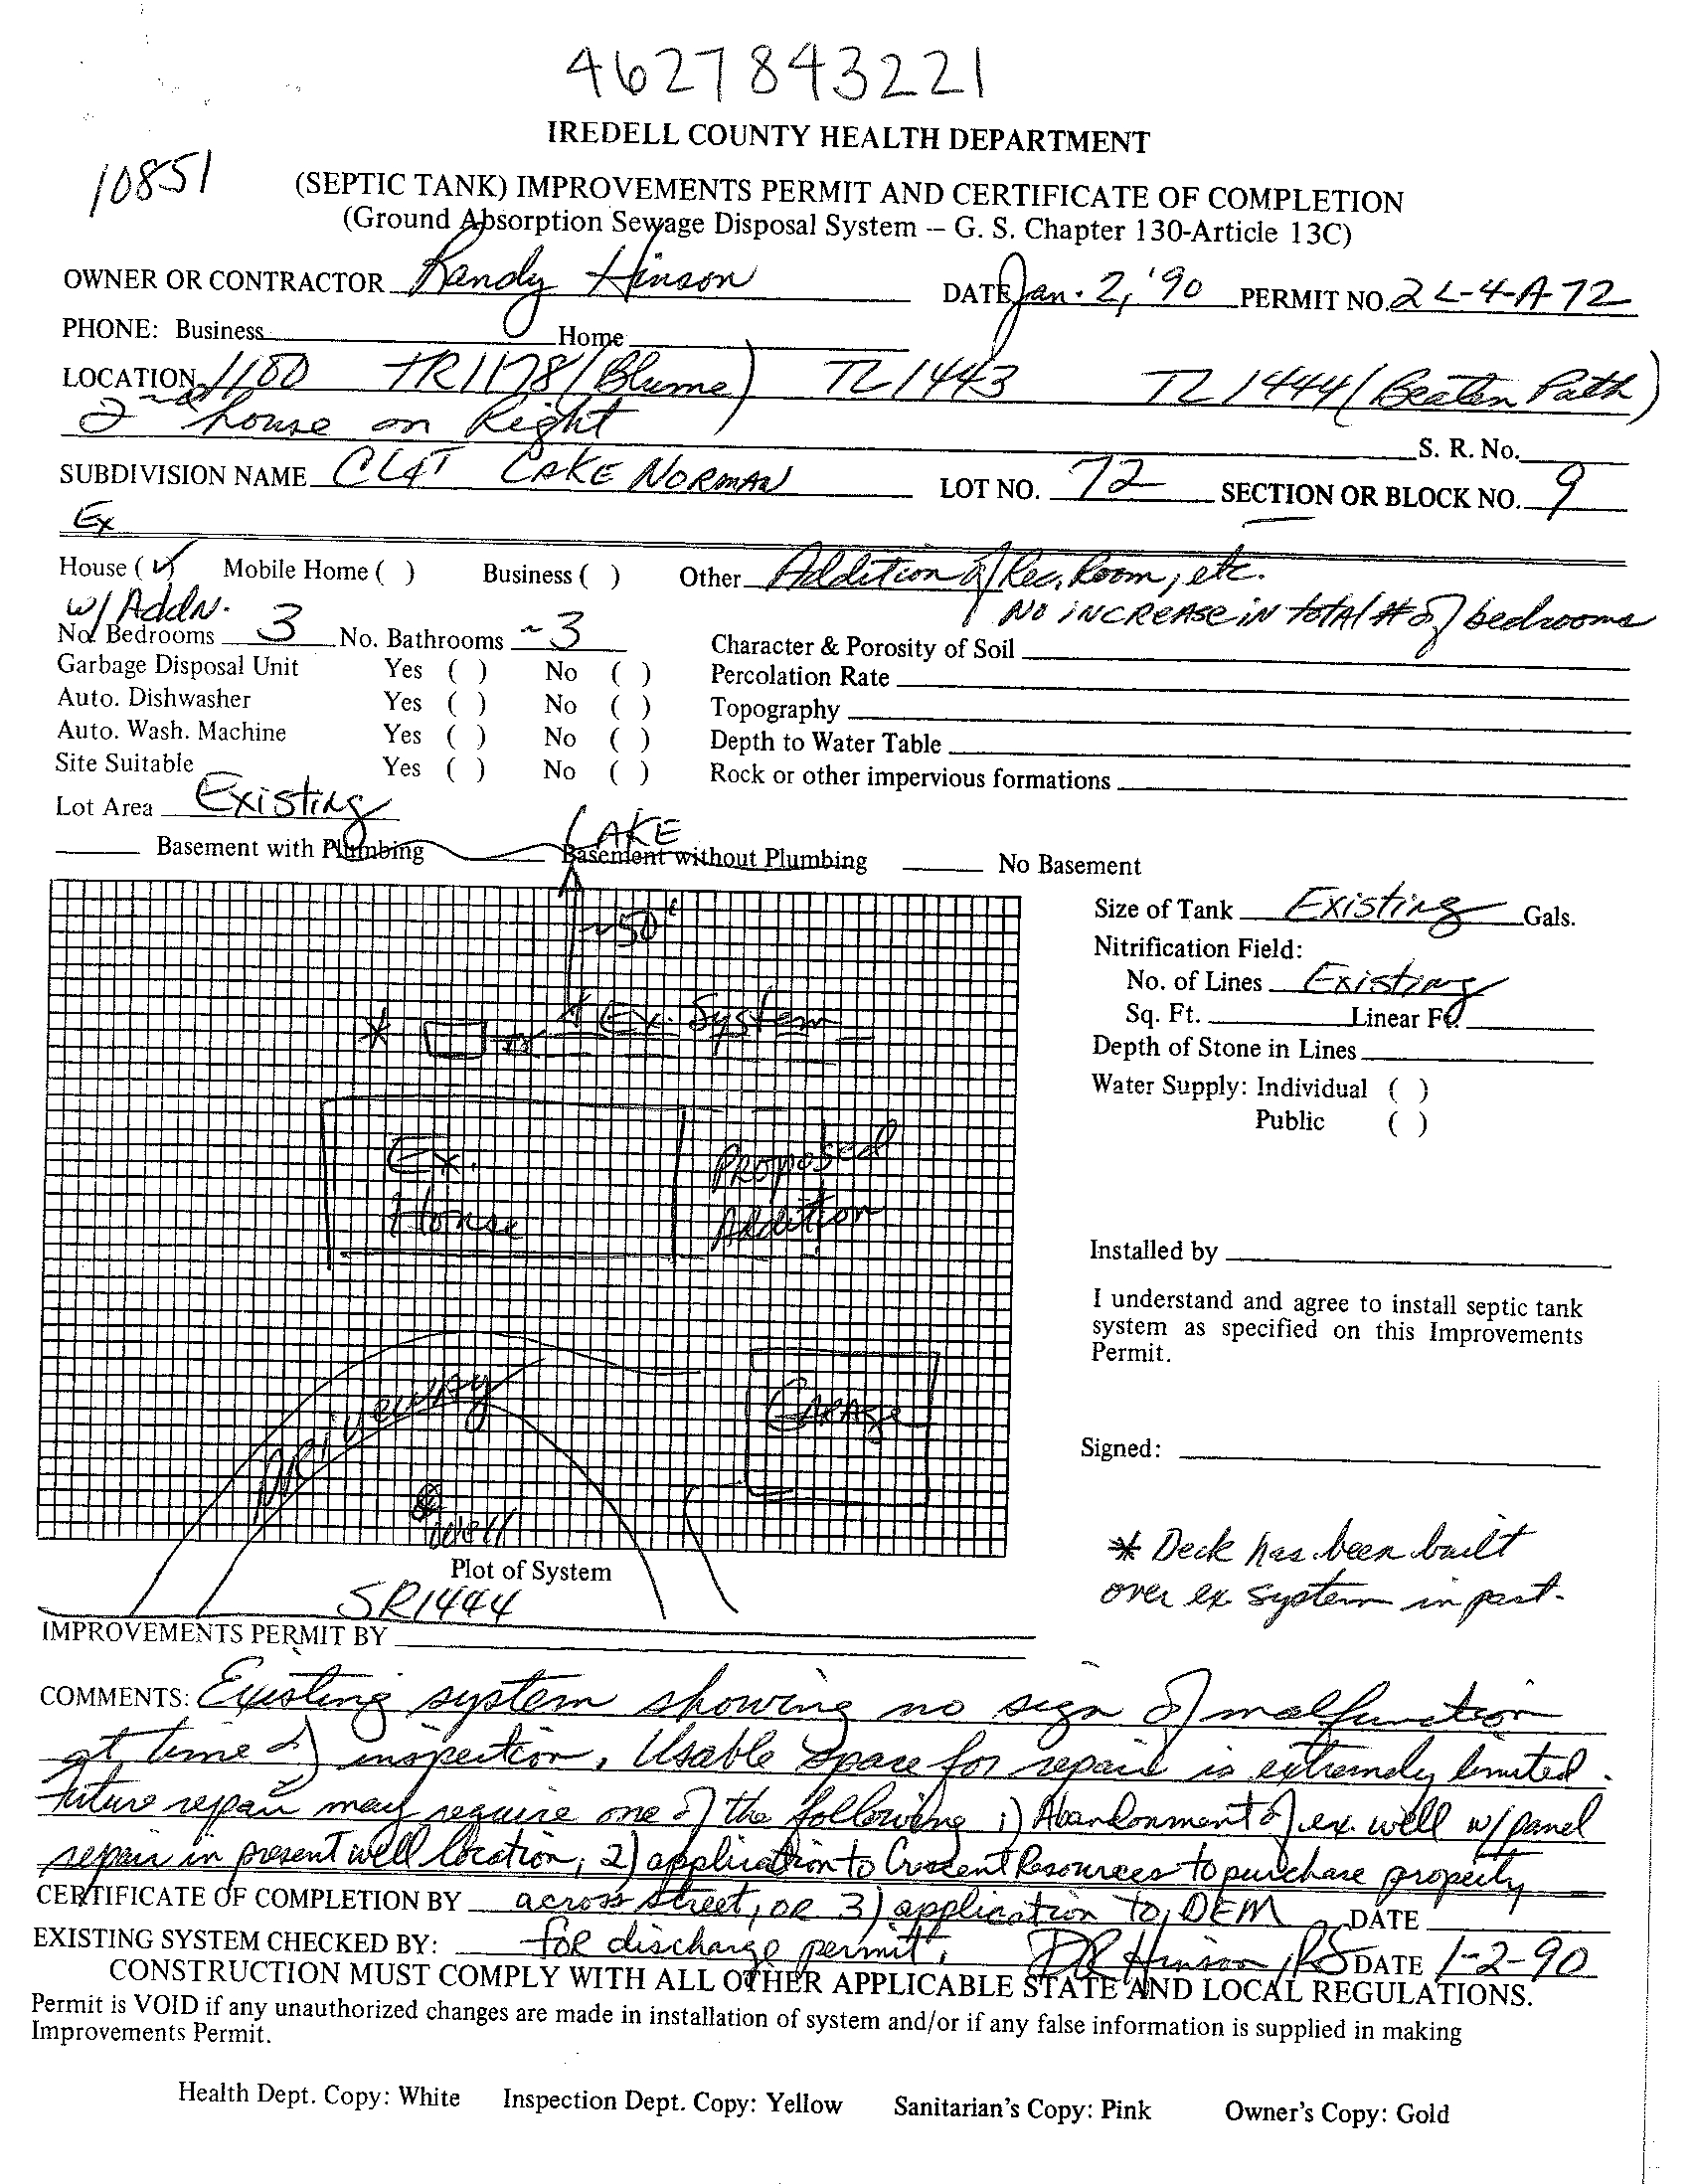 4627843221
IREDELL COUNTY HEALTH DEPARTMENT
10851
(SEPTIC TANK) IMPROVEMENTS PERMIT AND CERTIFICATE OF COMPLETION
(Ground Absorption Sewage Disposal System – G. S. Chapter 130-Article 13C)
OWNER OR CONTRACTOR Randy Hinson DATE Jan. 2, '90 PERMIT NO. 2L-4-A-72
PHONE: Business Home
LOCATION 1100 TR1178 (Blume) TL1443 TL1444 (Beaten Path)
2nd house on Right
S. R. No.
SUBDIVISION NAME CL&T LAKE NORMAN LOT NO. 72 SECTION OR BLOCK NO. 9
Ex
House (✓) Mobile Home ( ) Business ( ) Other Addition of Rec. Room, etc.
w/ Addn. NO INCREASE IN total # of bedrooms
No. Bedrooms 3 No. Bathrooms ~3 Character & Porosity of Soil
Garbage Disposal Unit Yes ( ) No ( ) Percolation Rate
Auto. Dishwasher Yes ( ) No ( ) Topography
Auto. Wash. Machine Yes ( ) No ( ) Depth to Water Table
Site Suitable Yes ( ) No ( ) Rock or other impervious formations
Lot Area Existing
LAKE
Basement with Plumbing Basement without Plumbing No Basement
~50'
* Ex. System
Ex. House
Proposed Addition
Driveway
Garage
Well
Size of Tank Existing Gals.
Nitrification Field:
No. of Lines Existing
Sq. Ft. Linear Ft.
Depth of Stone in Lines
Water Supply: Individual ( )
Public ( )
Installed by
I understand and agree to install septic tank
system as specified on this Improvements
Permit.
Signed:
* Deck has been built
over ex system in past.
Plot of System
SR1444
IMPROVEMENTS PERMIT BY
COMMENTS: Existing system showing no sign of malfunction
at time of inspection. Usable space for repair is extremely limited.
Future repair may require one of the following 1) Abandonment of ex. well w/ panel
repair in present well location, 2) application to Crescent Resources to purchase property
CERTIFICATE OF COMPLETION BY across street, or 3) application to DEM DATE
EXISTING SYSTEM CHECKED BY: for discharge permit. DR Hinson, RS DATE 1-2-90
CONSTRUCTION MUST COMPLY WITH ALL OTHER APPLICABLE STATE AND LOCAL REGULATIONS.
Permit is VOID if any unauthorized changes are made in installation of system and/or if any false information is supplied in making
Improvements Permit.
Health Dept. Copy: White Inspection Dept. Copy: Yellow Sanitarian's Copy: Pink Owner's Copy: Gold